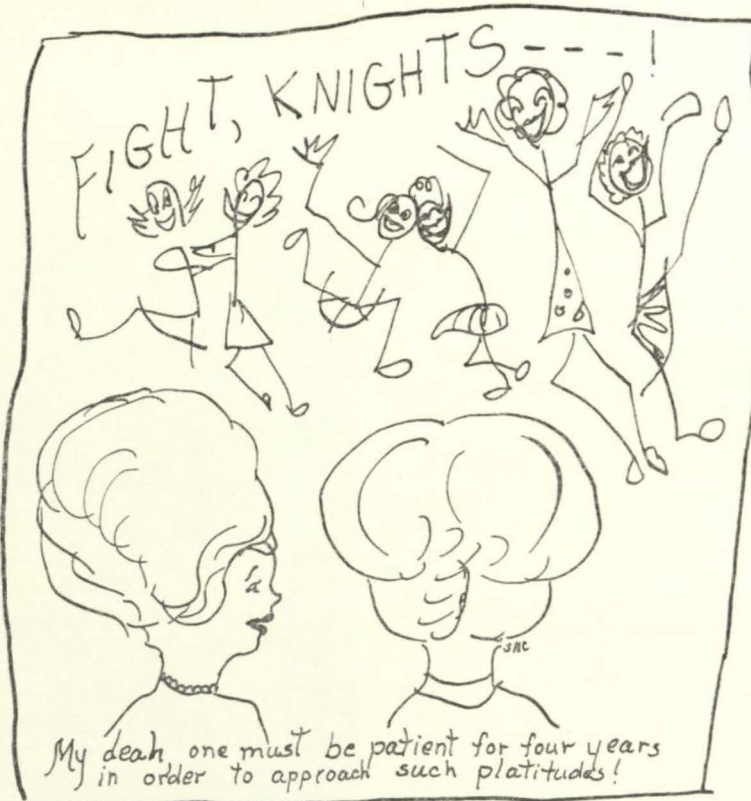 FIGHT, KNIGHTS----!
SNC
My deah, one must be patient for four years
in order to approach such platitudes!